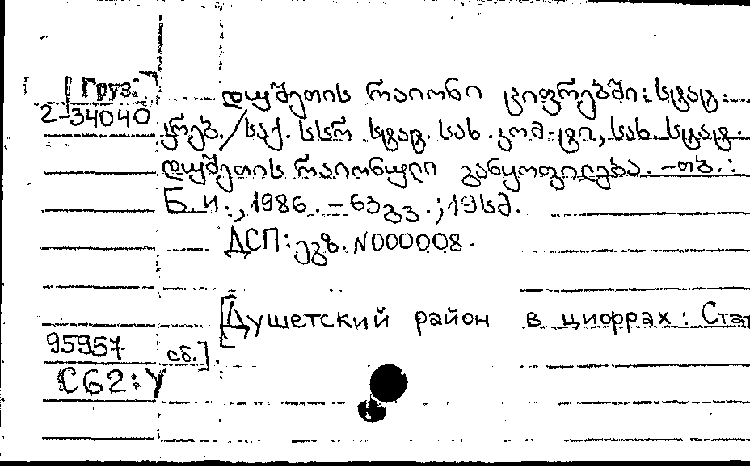 [Груз.]
2-34040
დუშეთის რაიონი ციფრებში: სტატ.
კრებ. / საქ. სსრ სტატ. სახ. კომ-ტი, სახ. სტატ.
დუშეთის რაიონული განყოფილება. – თბ.:
Б.и., 1986. – 63გვ.; 19სმ.
ДСП: ეგზ. N000008.
[Душетский район в цифрах: Стат
сб.]
95957
С62:У